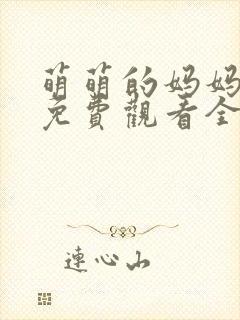 萌萌的妈妈
免費觀看全
連心山